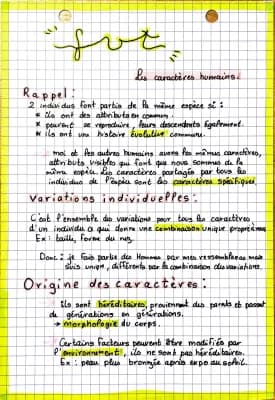 Les caractères humains.
Rappel:
2 individus font partie de la même espèce si :
* ils ont des attributs en commun.
* peuvent se reproduire, leurs descendants également.
* ils ont une histoire évolutive commune.
moi et les autres humains avons les mêmes caractères,
attributs visibles qui font que nous sommes de la
même espèce. Les caractères partagés par tous les
individus de l'espèce sont les caractères spécifiques.
Variations individuelles:
C'est l'ensemble des variations pour tous les caractères
d'un individu qui donne une combinaison unique propre
Ex : taille, forme du nez,
Donc : je fais partie des Hommes par mes ressemblances mais
suis unique, différente par la combinaison des variations.
Origine des caractères:
Ils sont héréditaires, proviennent des parents et passent
de générations en générations.
→ morphologie du corps.
Certains facteurs peuvent être modifiés par
l'environnement, ils ne sont pas héréditaires.
Ex : peau plus bronzée après expo au soleil.